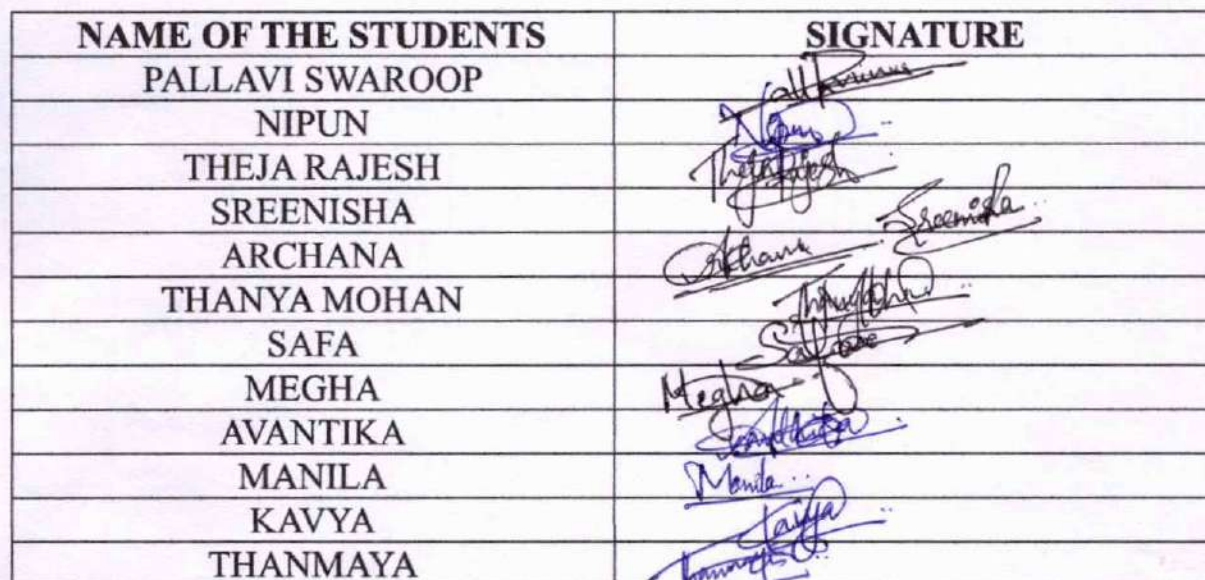 NAME OF THE STUDENTS SIGNATURE
PALLAVI SWAROOP
NIPUN
THEJA RAJESH Theja Rajesh
SREENISHA Sreenisha
ARCHANA
THANYA MOHAN
SAFA
MEGHA Megha
AVANTIKA
MANILA Manila
KAVYA Kavya
THANMAYA